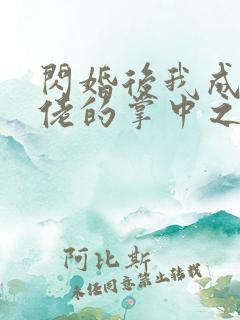 閃婚後我成
佬的掌中之
阿比斯
未经同意禁止转载